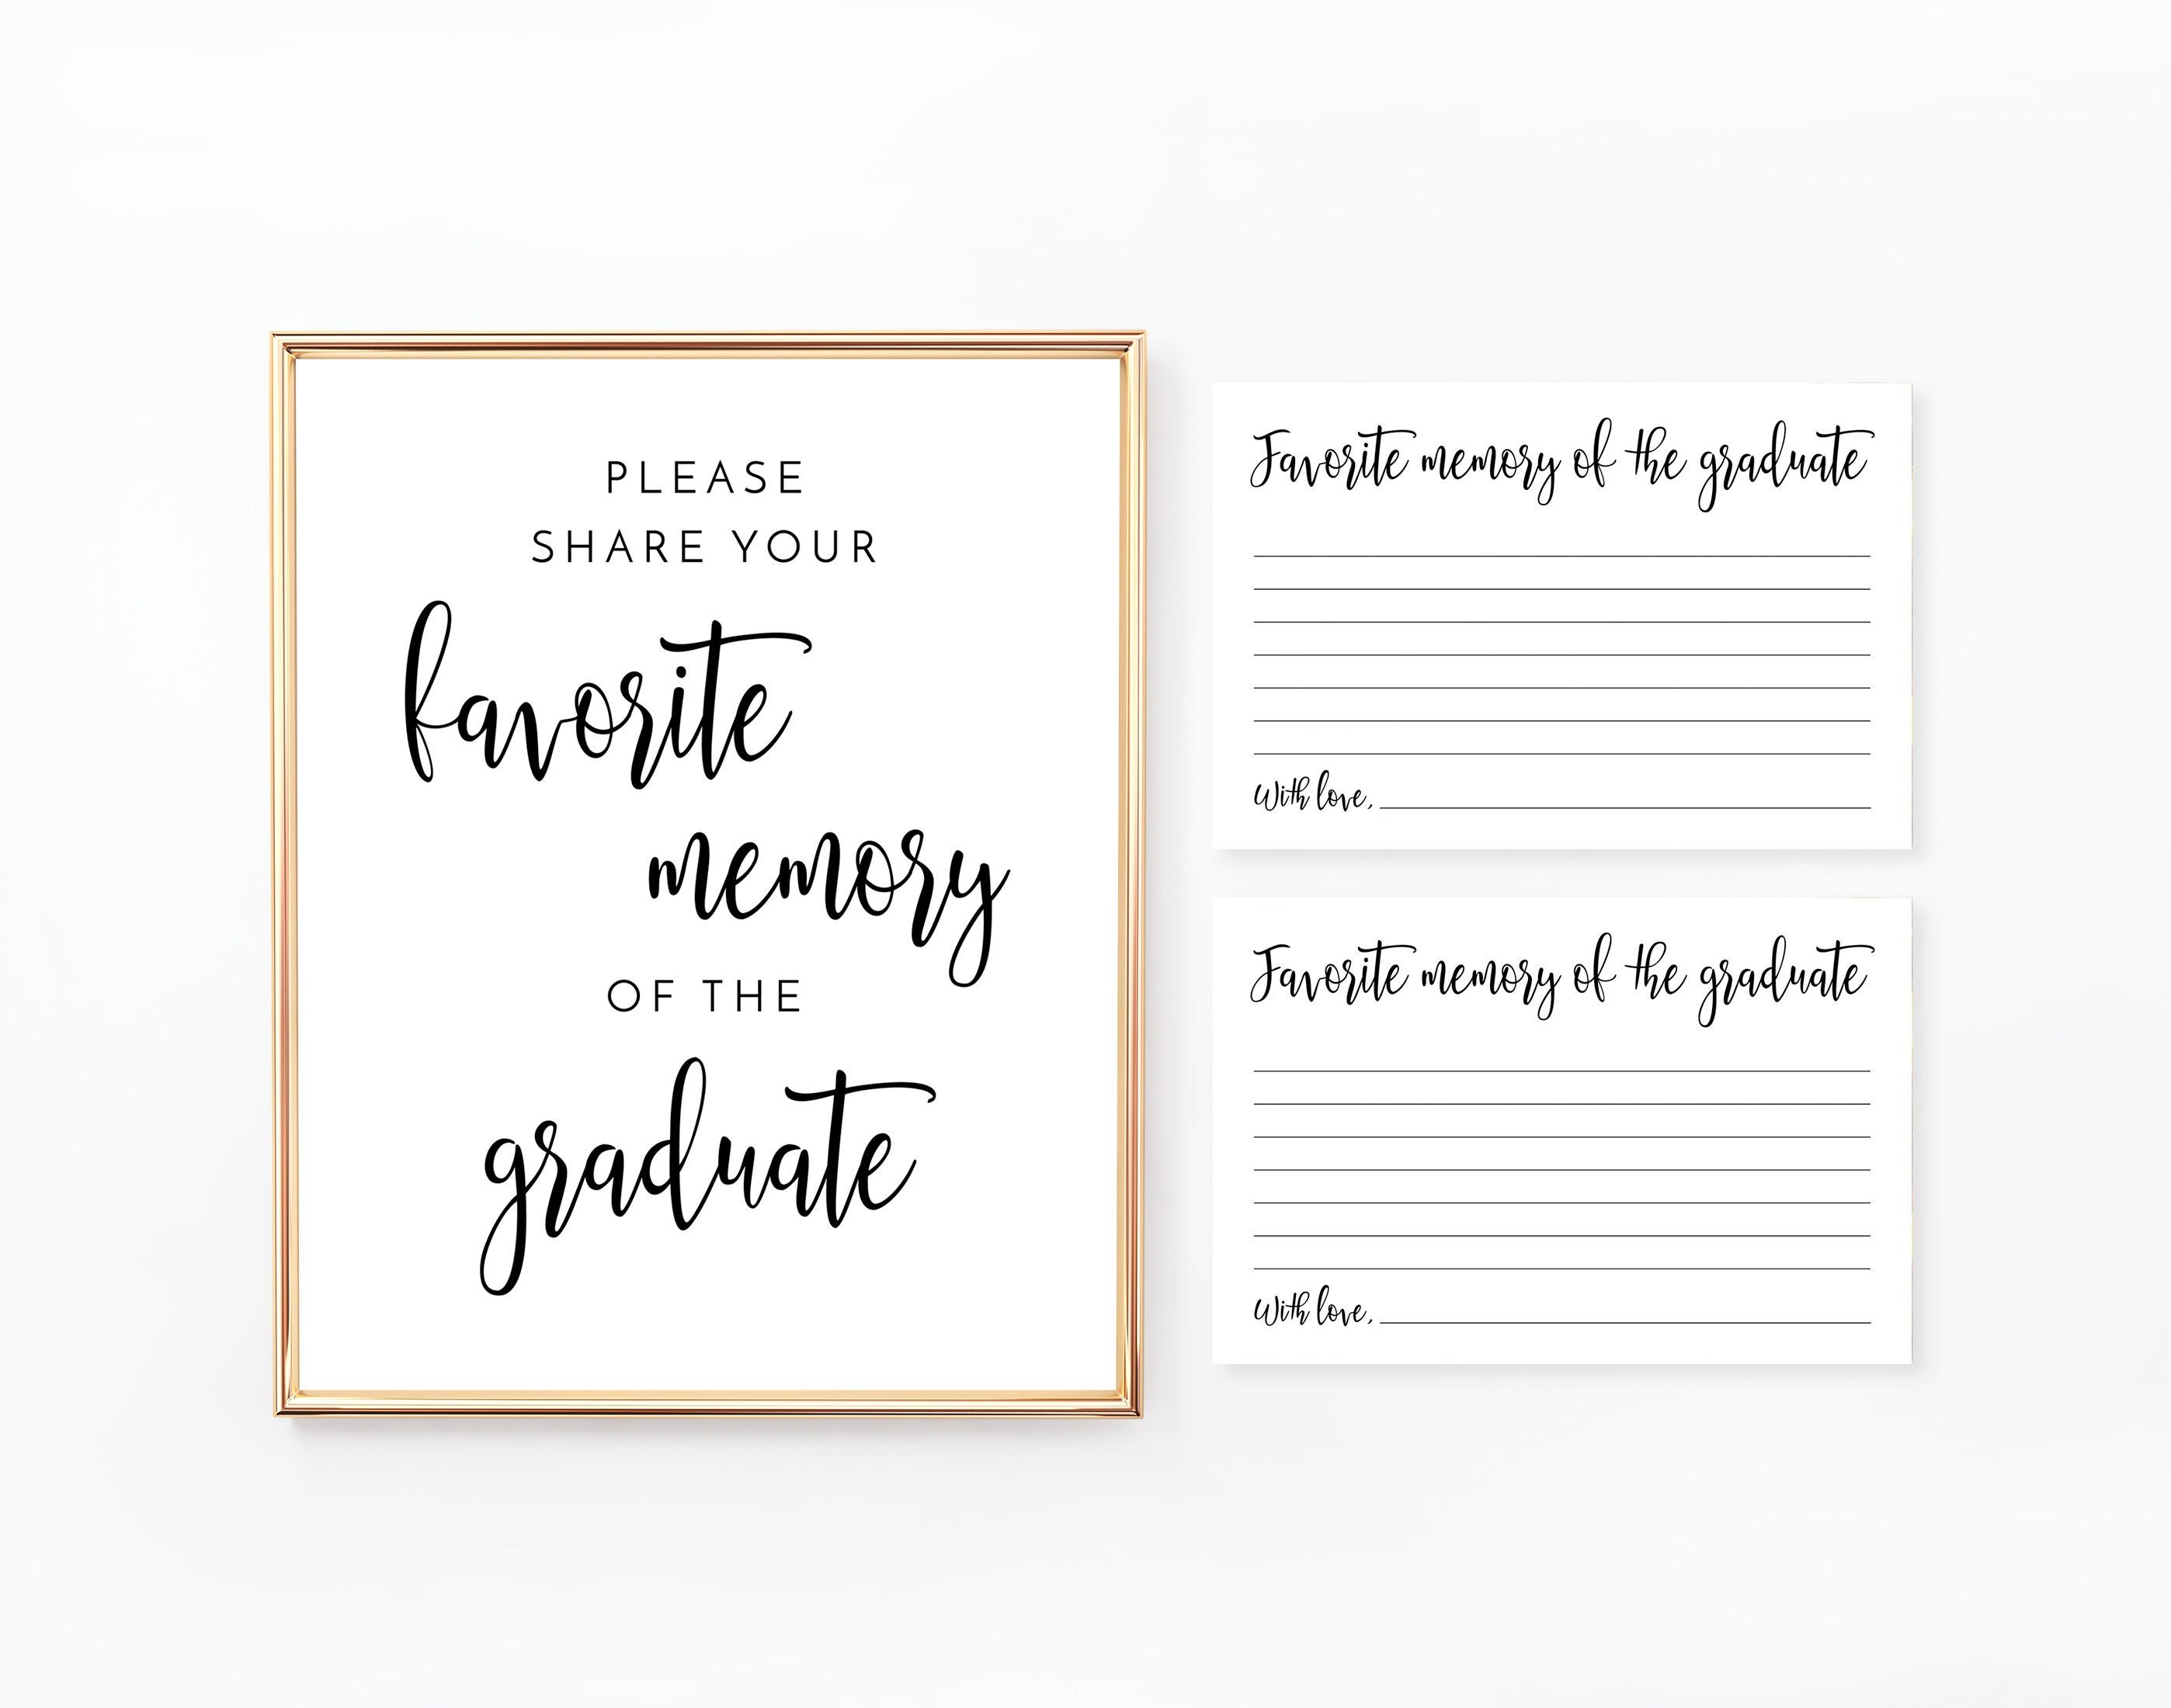 PLEASE
SHARE YOUR
favorite
memory
OF THE
graduate
Favorite memory of the graduate
With love,
Favorite memory of the graduate
With love,